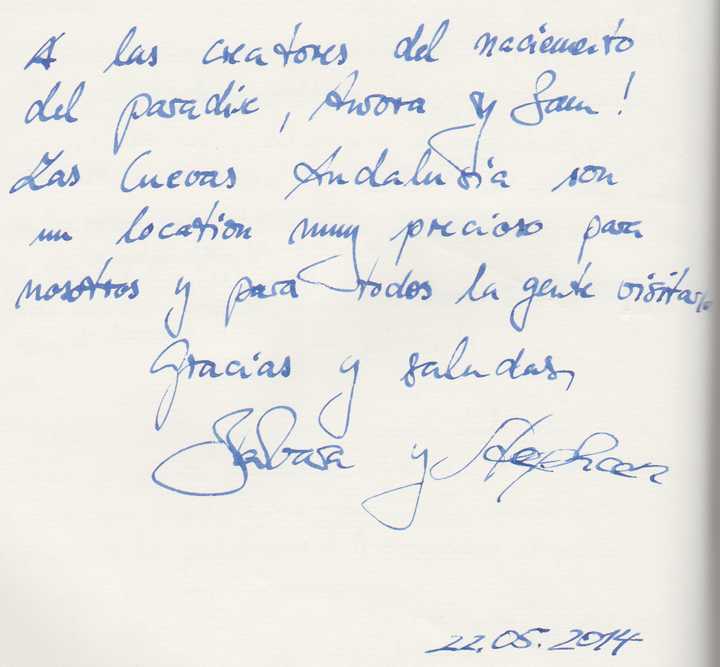 A las creatores del naciemento
del paradise, Awora y Sam!
Las Cuevas Andalusia son
un location muy precioso para
nosotros y para todos la gente visitarlo
Gracias y saludas,
Barbara y Stephan
22.05.2014